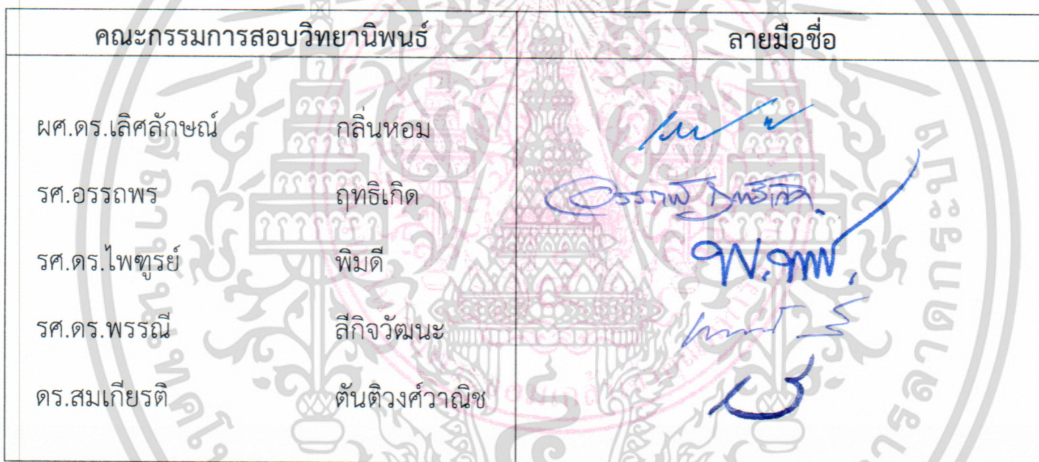 คณะกรรมการสอบวิทยานิพนธ์ ลายมือชื่อ
ผศ.ดร.เลิศลักษณ์ กลิ่นหอม
รศ.อรรถพร ฤทธิเกิด
รศ.ดร.ไพฑูรย์ พิมดี
รศ.ดร.พรรณี ลีกิจวัฒนะ
ดร.สมเกียรติ ตันติวงศ์วาณิช